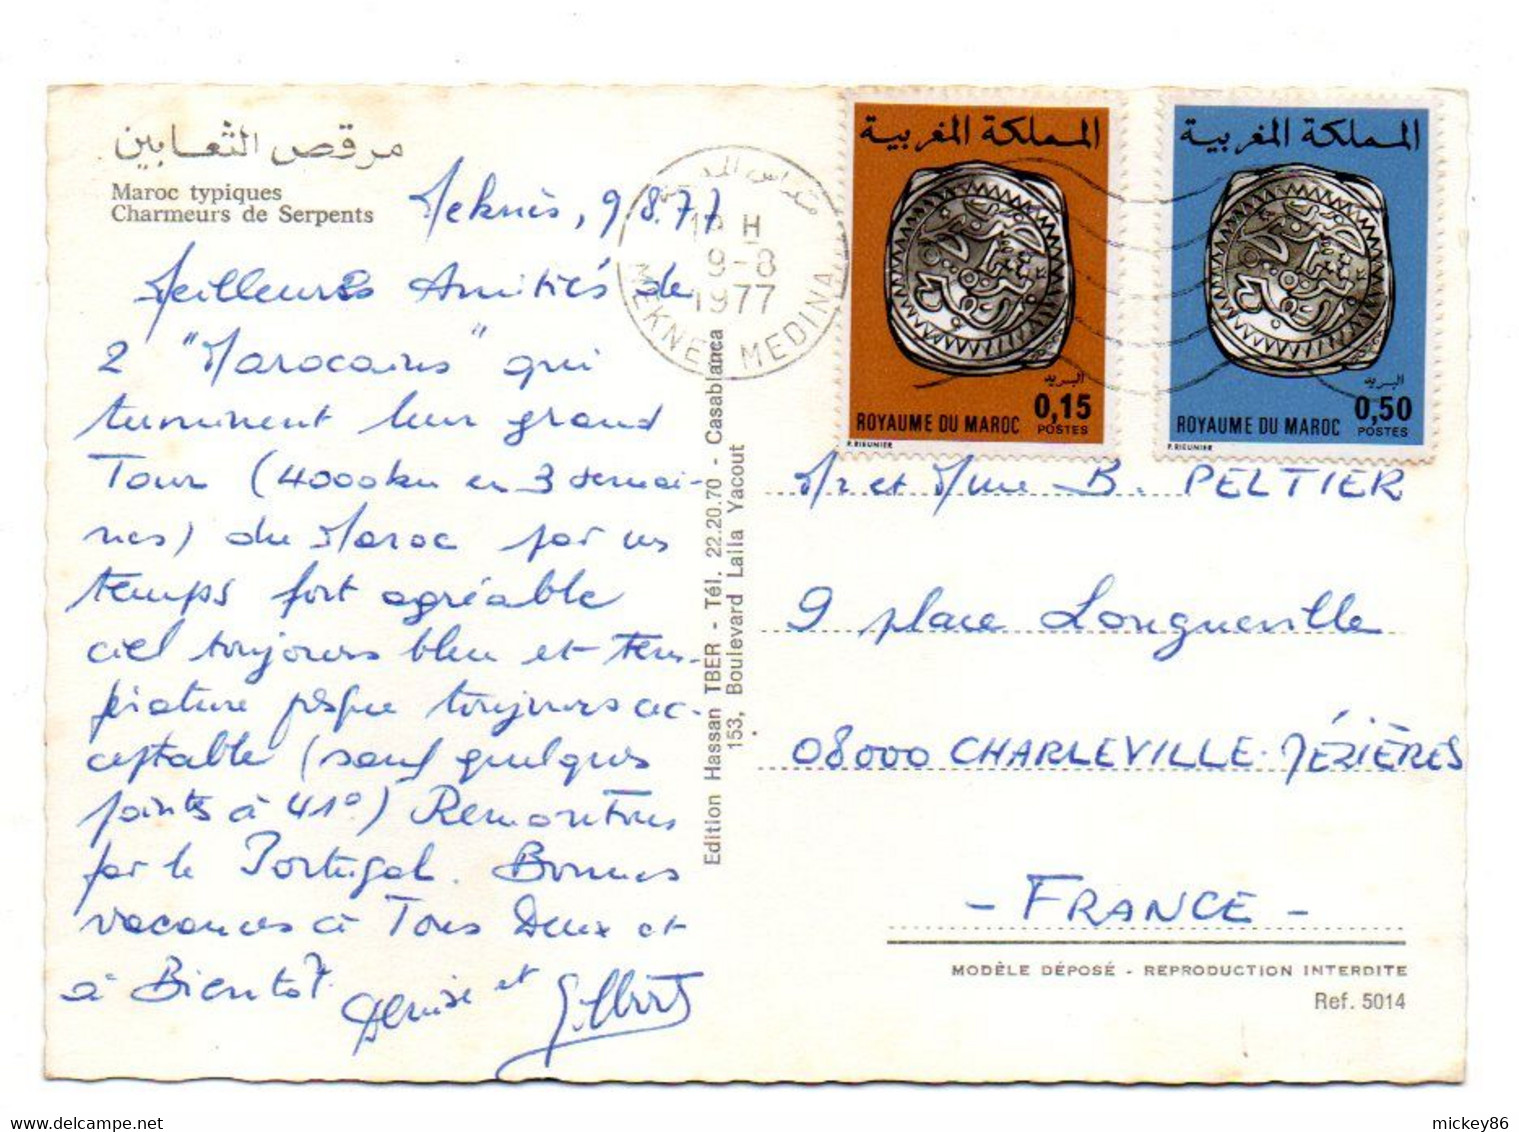 مرقص الثعابين
Maroc typiques
Charmeurs de Serpents
Meknès, 9.8.77
Meilleures Amitiés de
2 "Marocains" qui
terminent leur grand
Tour (4000 km en 3 semai-
nes) du Maroc par un
temps fort agréable
ciel toujours bleu et tem-
pérature presque toujours ac-
ceptable (sauf quelques
points à 41°) Remontons
par le Portugal. Bonnes
vacances à Tous Deux et
à Bientôt.
Denise et Gilbert
Edition Hassan TBER - Tél. 22.20.70 - Casablanca
153, Boulevard Lalla Yacout
H
9-8
1977
MEKNES MEDINA
المملكة المغربية
البريد
0,15
POSTES
ROYAUME DU MAROC
P. RIEUNIER
المملكة المغربية
البريد
0,50
POSTES
ROYAUME DU MAROC
P. RIEUNIER
Mr et Mme B. PELTIER
9 place Longueville
08000 CHARLEVILLE-MÉZIÈRES
- FRANCE -
MODÈLE DÉPOSÉ - REPRODUCTION INTERDITE
Ref. 5014
mickey86